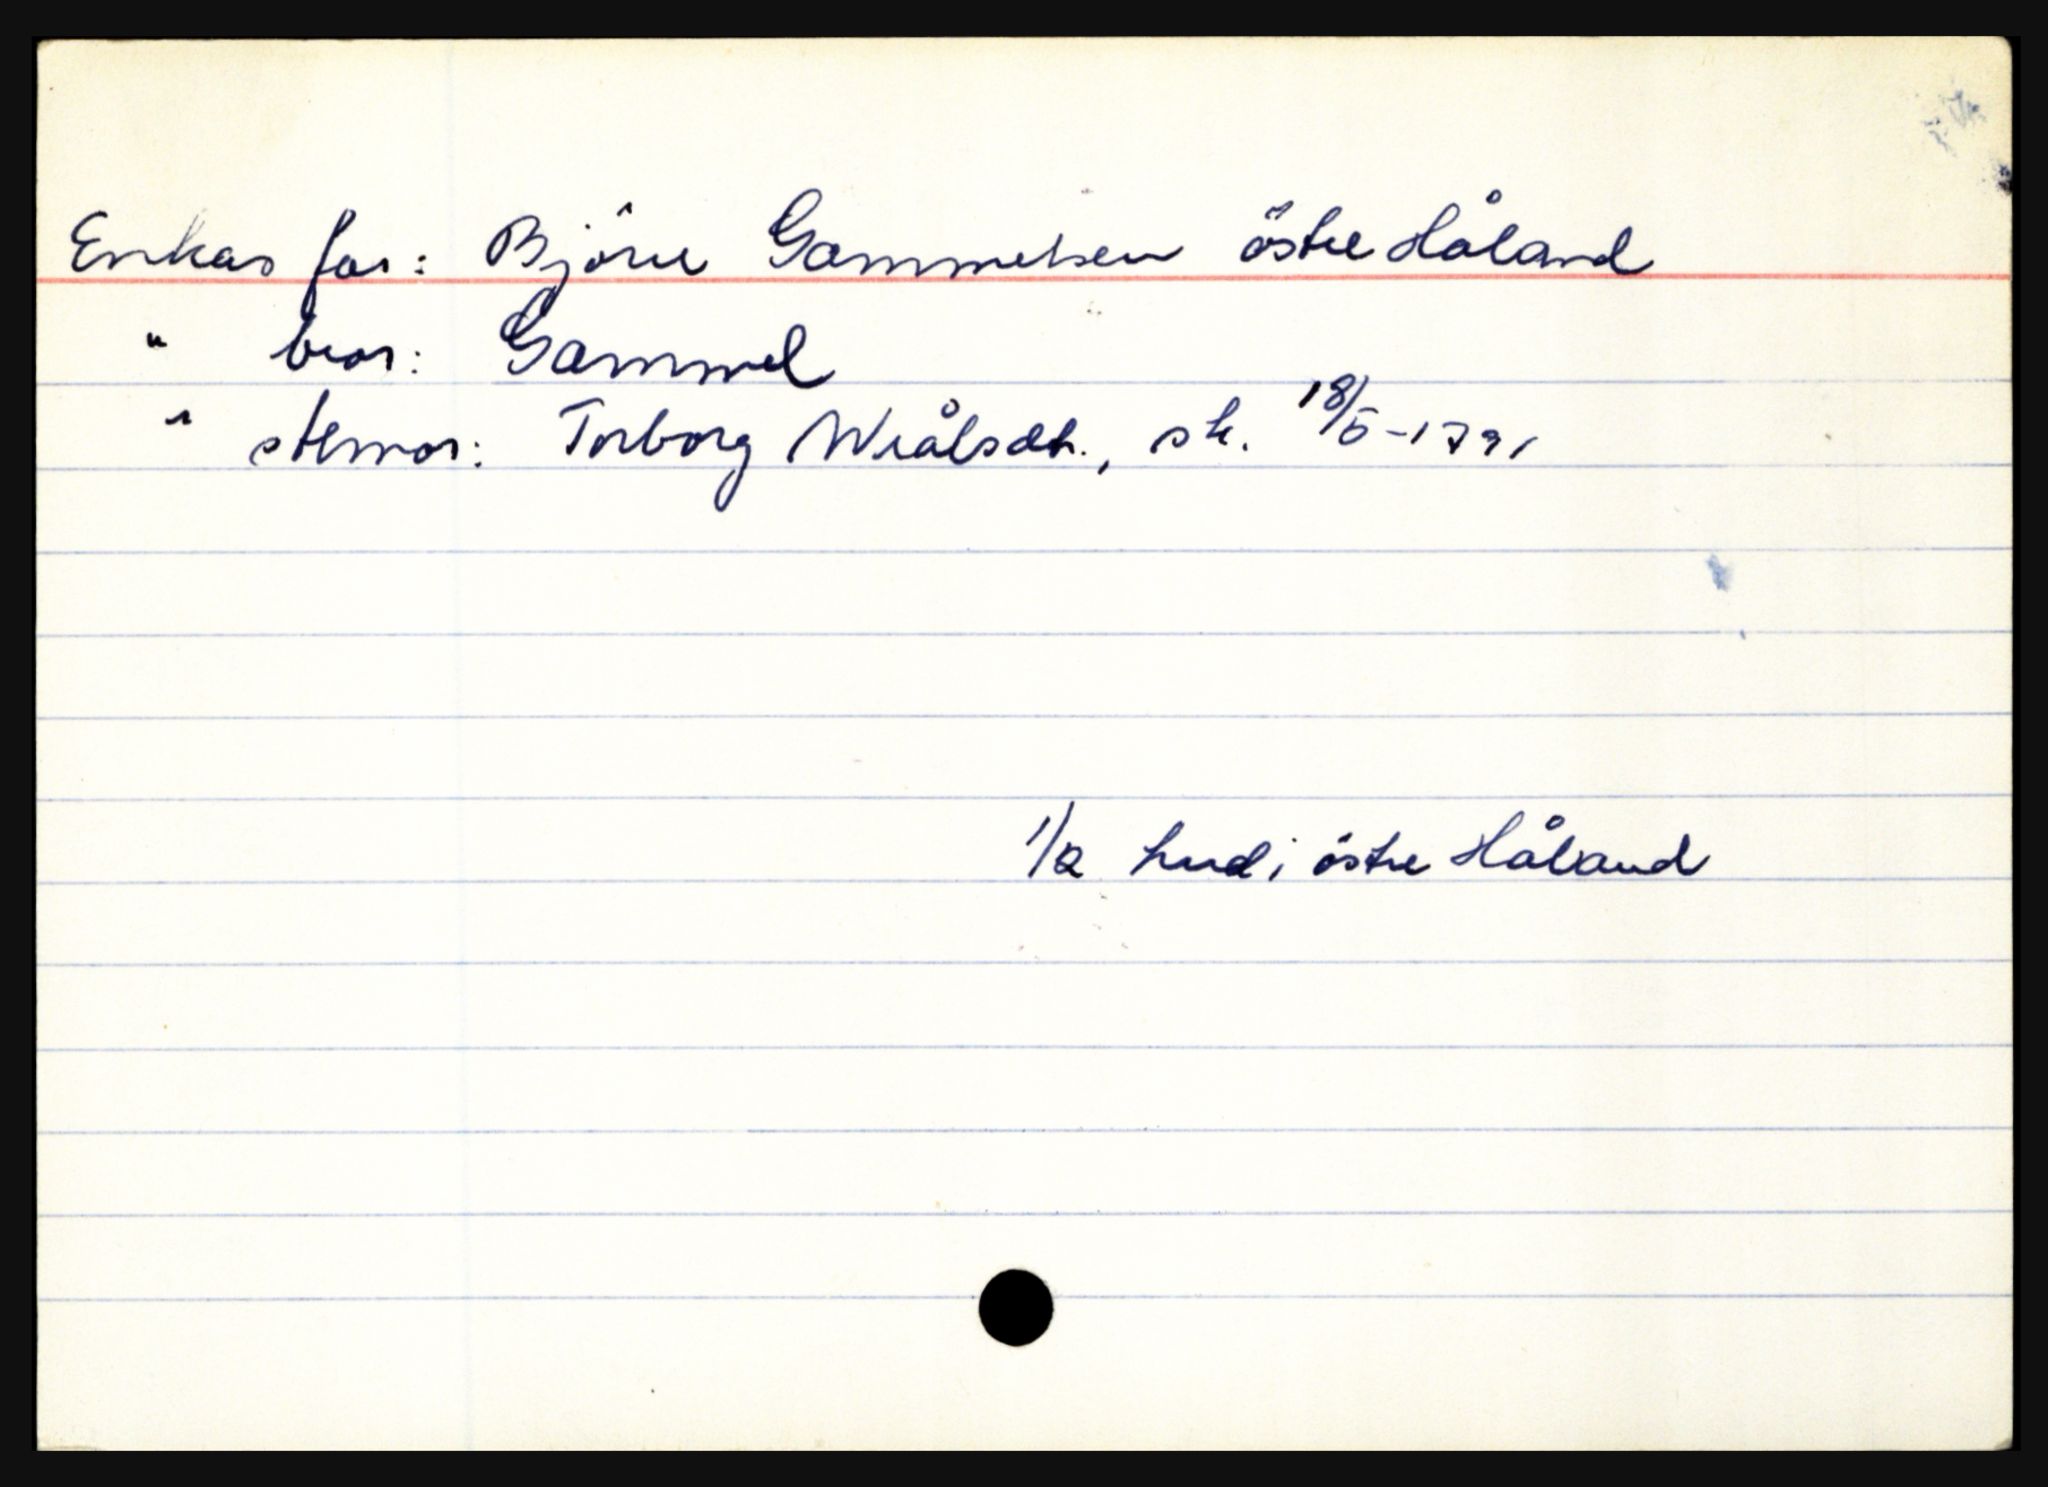 Enkas far: Björne Gammelsen östre Håland
" bror: Gammel
" stemor: Torborg Wrålsdt., sk. 18/5-1791
1/2 hud i östre Håland